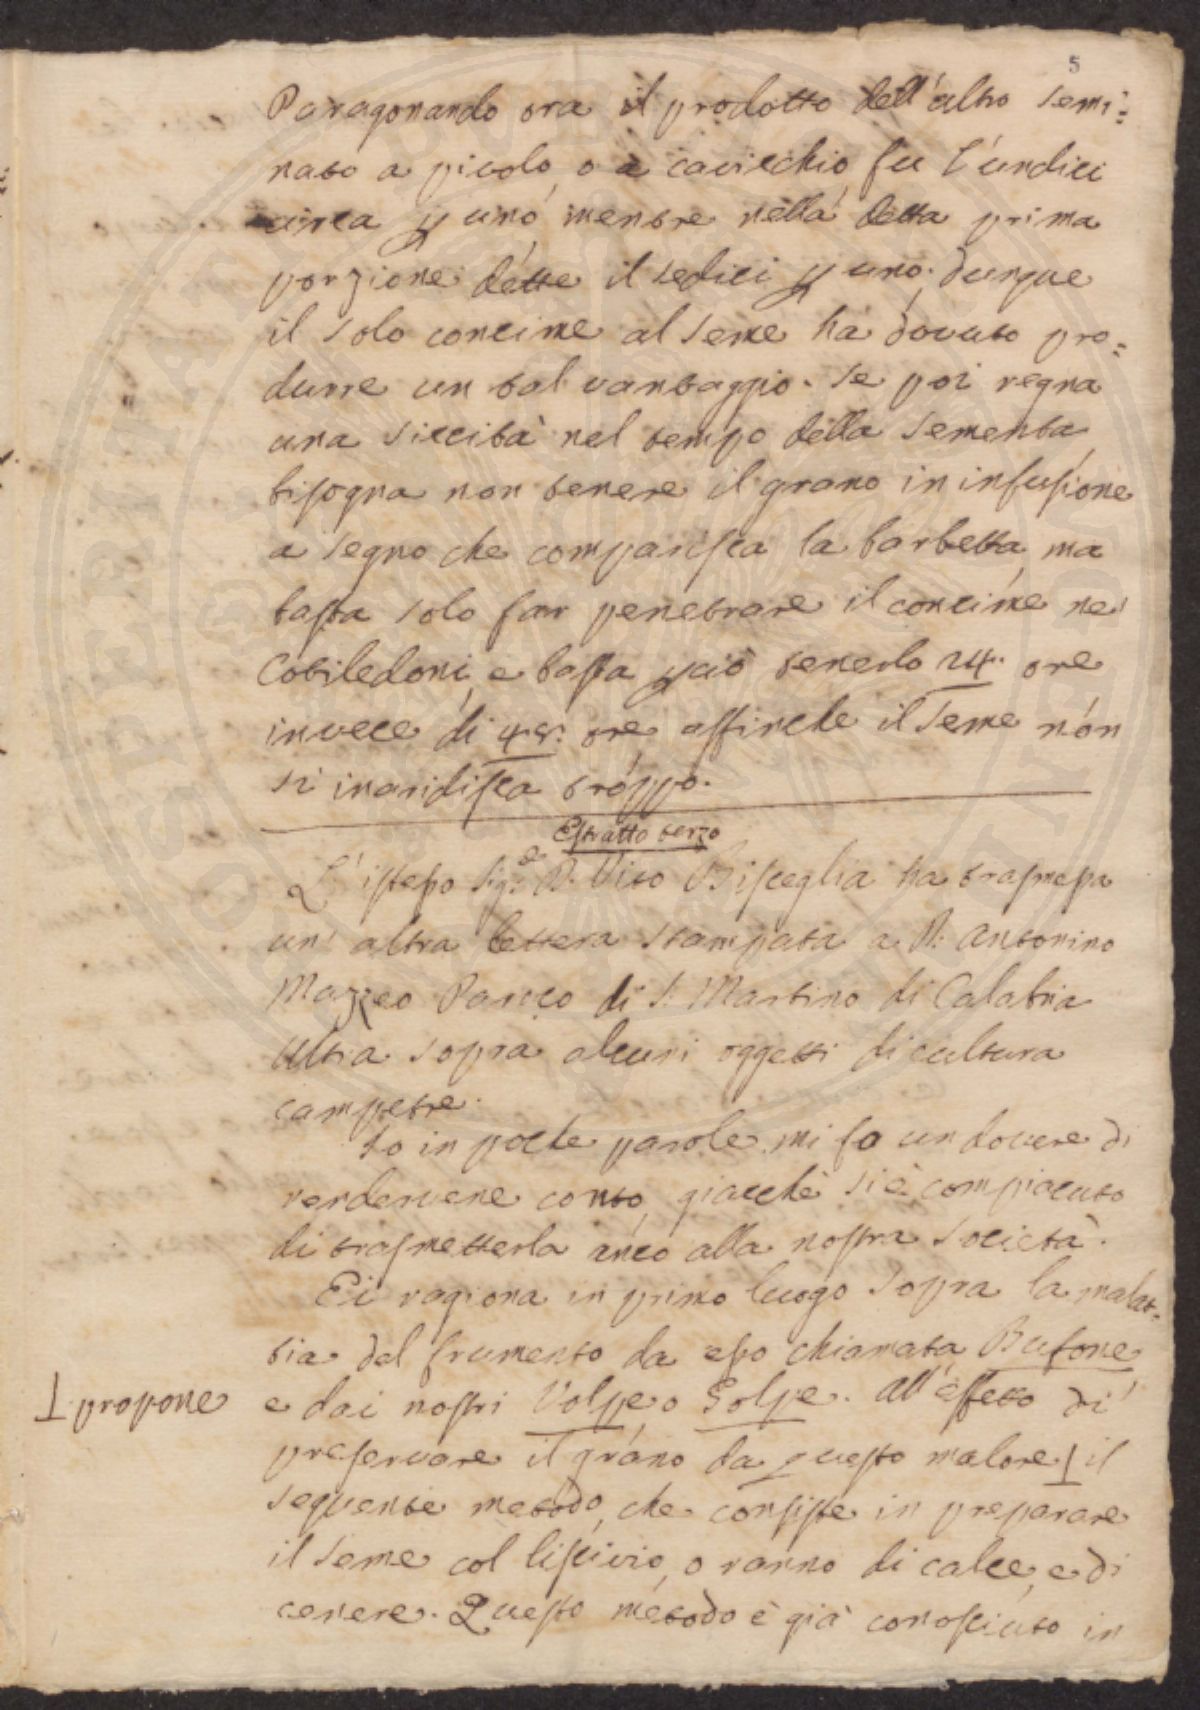 5
Paragonando ora il prodotto dell'altro semi=
nato a pivolo, o a cavicchio fu l'undici
circa p uno, mentre nella detta prima
porzione dette il sedici p uno. Dunque
il solo concime al seme ha dovuto pro=
durre un tal vantaggio. Se poi regna
una siccità nel tempo della sementa
bisogna non tenere il grano in infusione
a segno che comparisca la barbetta, ma
basta solo far penetrare il concime ne'
Cotiledoni, e basta pciò tenerlo 24. ore
invece di 48. ore affinche il seme non
si inaridisca troppo.
Estratto terzo
L'istesso Sig.e D. Vito Bisceglia ha trasmessa
un' altra lettera stampata a D: Antonino
Mazzeo Parroco di S: Martino di Calabria
Ultra sopra alcuni oggetti di cultura
campestre.
Io in poche parole mi fo un dovere di
rendervene conto, giacchè si è compiaciuto
di trasmetterla anco alla nostra Società.
Ei ragiona in primo luogo sopra la malat=
tia del frumento da esso chiamata Bufone,
e dai nostri Volpe o Golpe. All'effetto di
preservare il grano da questo malore ⊥ il
⊥ propone
seguente metodo, che consiste in preparare
il seme col liscivio, o ranno di calce, e di
cenere. Questo metodo è già conosciuto in